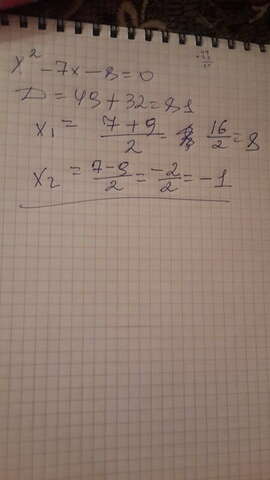 x² - 7x - 8 = 0
D = 49 + 32 = 81
x₁ = 7 + 9 / 2 = 16 / 2 = 8
x₂ = 7 - 9 / 2 = -2 / 2 = -1